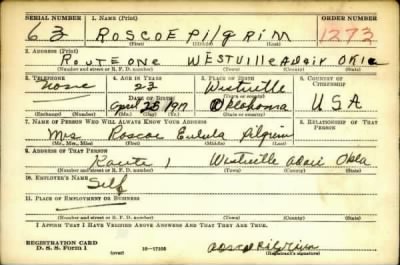 SERIAL NUMBER 1. NAME (Print) ORDER NUMBER
63 ROSCOE PILGRIM 1273
(First) (Middle) (Last)
2. ADDRESS (Print)
ROUTE ONE WESTVILLE ADAIR OKLA
(Number and street or R. F. D. number) (Town) (County) (State)
3. TELEPHONE 4. AGE IN YEARS 5. PLACE OF BIRTH 6. COUNTRY OF CITIZENSHIP
none 23 Westville
DATE OF BIRTH (Town or county)
April 25 1917 Oklahoma USA
(Exchange) (Number) (Mo.) (Day) (Yr.) (State or country)
7. NAME OF PERSON WHO WILL ALWAYS KNOW YOUR ADDRESS 8. RELATIONSHIP OF THAT PERSON
Mrs Roscoe Eulula Pilgrim
(Mr., Mrs., Miss) (First) (Middle) (Last)
9. ADDRESS OF THAT PERSON
Route 1 Westville Adair Okla
(Number and street or R. F. D. number) (Town) (County) (State)
10. EMPLOYER'S NAME
Self
11. PLACE OF EMPLOYMENT OR BUSINESS
(Number and street or R. F. D. number) (Town) (County) (State)
I AFFIRM THAT I HAVE VERIFIED ABOVE ANSWERS AND THAT THEY ARE TRUE.
REGISTRATION CARD
D. S. S. Form 1 (over) 16—17105 Roscoe Pilgrim
(Registrant's signature)